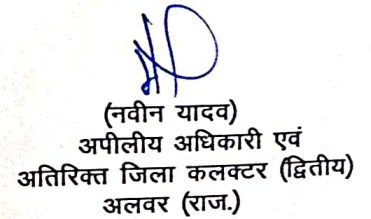 (नवीन यादव)
अपीलीय अधिकारी एवं
अतिरिक्त जिला कलक्टर (द्वितीय)
अलवर (राज.)